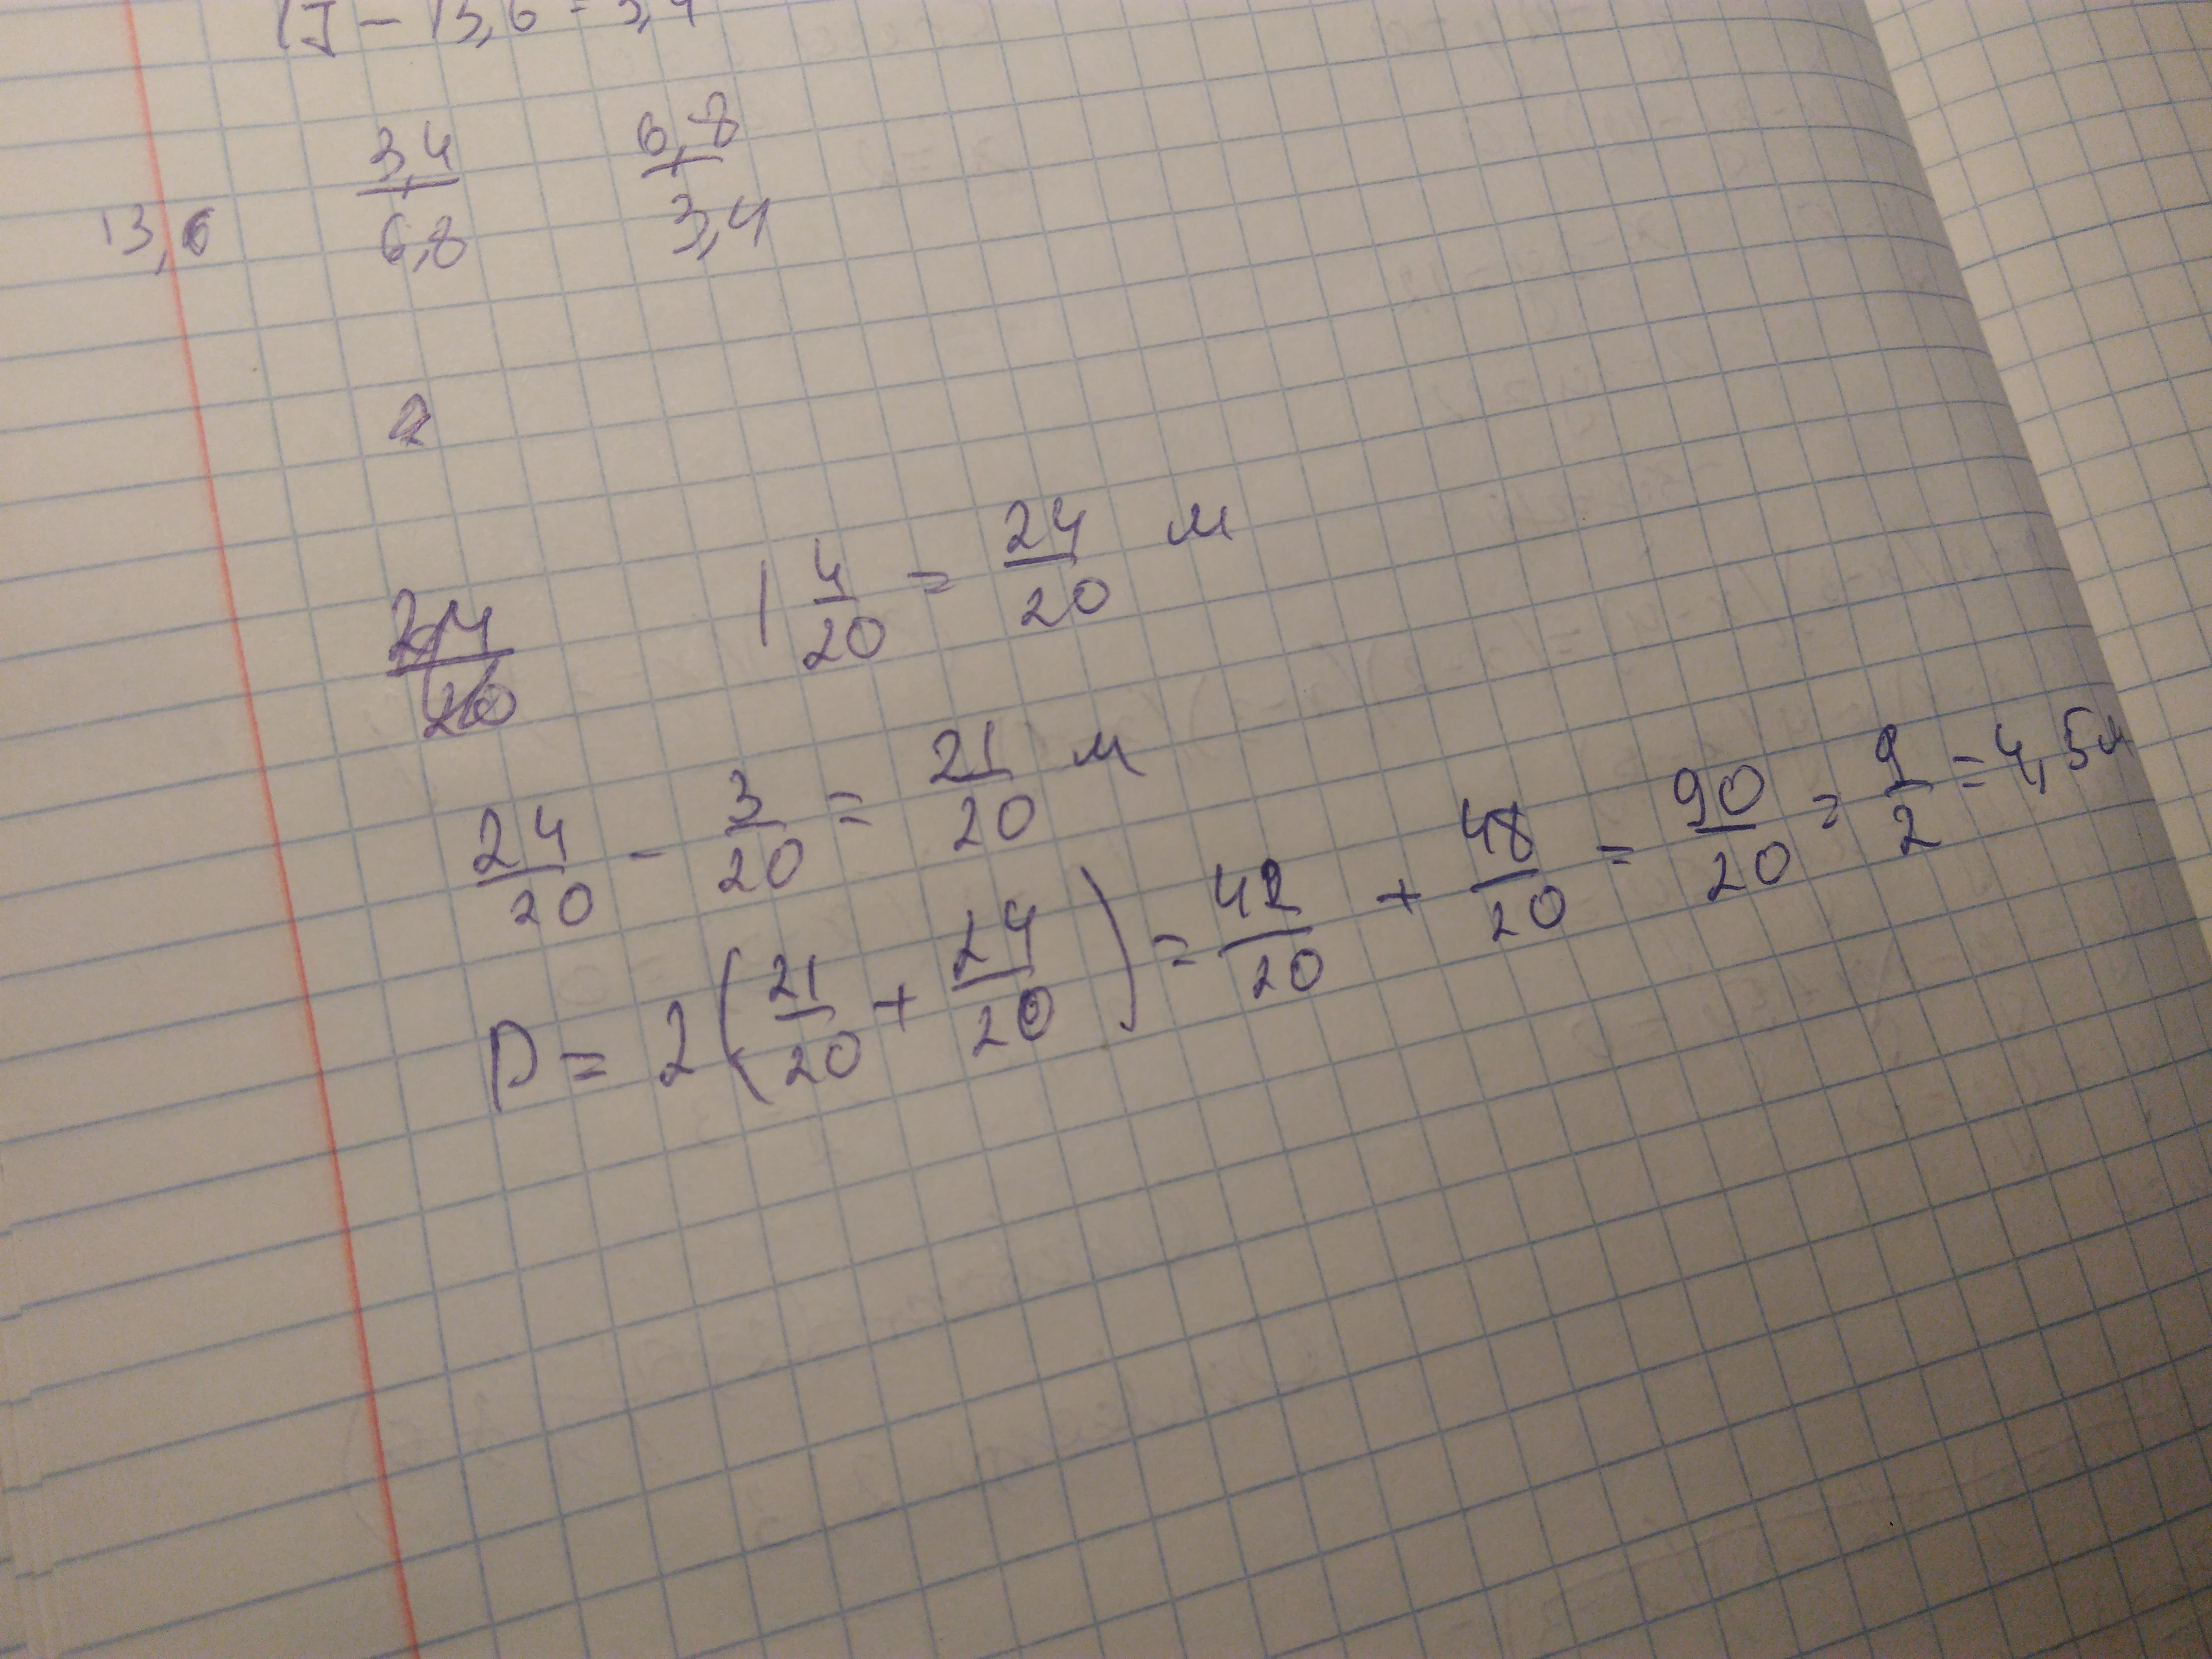 17 - 13,6 = 3,4
3,4 6,8
13,6 6,8 3,4
2
24/20 1 4/20 = 24/20 м
24/20 - 3/20 = 21/20 м
P = 2(21/20 + 24/20) = 42/20 + 48/20 = 90/20 = 9/2 = 4,5м